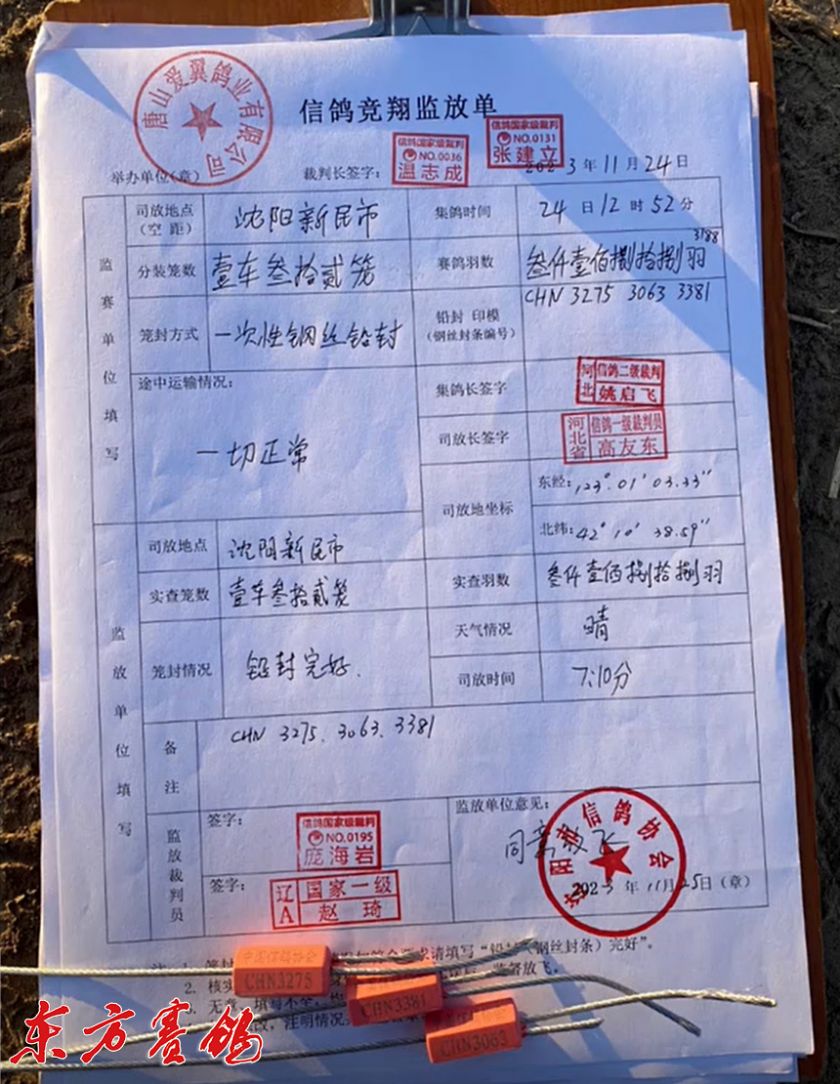 唐山爱翼鸽业有限公司
信鸽竞翔监放单
举办单位(章) 裁判长签字: 信鸽国家级裁判 NO.0036 温志成 信鸽国家级裁判 NO.0131 张建立 2023年11月24日
监赛单位填写
司放地点(空距) 沈阳新民市 集鸽时间 24日12时52分
分装笼数 壹车叁拾贰笼 赛鸽羽数 叁仟壹佰捌拾捌羽 3188
笼封方式 一次性钢丝铅封 铅封 印模(钢丝封条编号) CHN 3275 3063 3381
途中运输情况: 一切正常
集鸽长签字 河北 信鸽二级裁判 姚启飞
司放长签字 河北省 信鸽一级裁判员 高友东
司放地坐标 东经: 123°01′03.33″
北纬: 42°10′38.59″
监放单位填写
司放地点 沈阳新民市
实查笼数 壹车叁拾贰笼 实查羽数 叁仟壹佰捌拾捌羽
笼封情况 铅封完好. 天气情况 晴
司放时间 7:10分
备注 CHN 3275. 3063. 3381
监放裁判员 签字: 信鸽国家级裁判 NO.0195 庞海岩
签字: 辽A 国家一级 赵琦
监放单位意见: 同意放飞
阳市信鸽协会
2023年11月25日(章)
请填写“铅封(钢丝封条)完好”。
2. 核实 监督放飞。
3. 无章、填写不全、
改,注明情况
中国信鸽协会
CHN3275
CHN3381
CHN3063
东方赛鸽